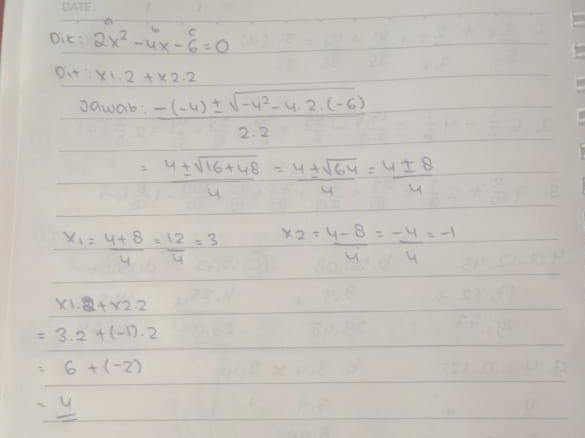 DATE:
a b c
Dik: 2x² - 4x - 6 = 0
Dit: x1.2 + x2.2
Jawab: -(-4) ± √-4² - 4.2.(-6)
2.2
= 4 ± √16+48 = 4 ± √64 = 4 ± 8
4 4 4
x1 = 4+8 = 12 = 3 x2 = 4-8 = -4 = -1
4 4 4 4
x1.2 + x2.2
= 3.2 + (-1).2
= 6 + (-2)
= 4